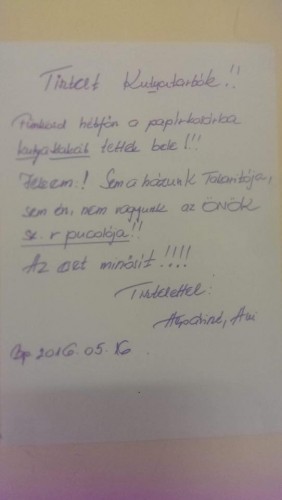 Tisztelt Kutyatartók!!
hétfőn a papírkosárba
kutyakakát tettek bele!!!
Kérem! Sem a házunk Takarítója,
sem én, nem vagyunk az ÖNÖK
sz. r pucolója!!
Az eset minősít!!!!
Tisztelettel:
Bp 2016.05.16.